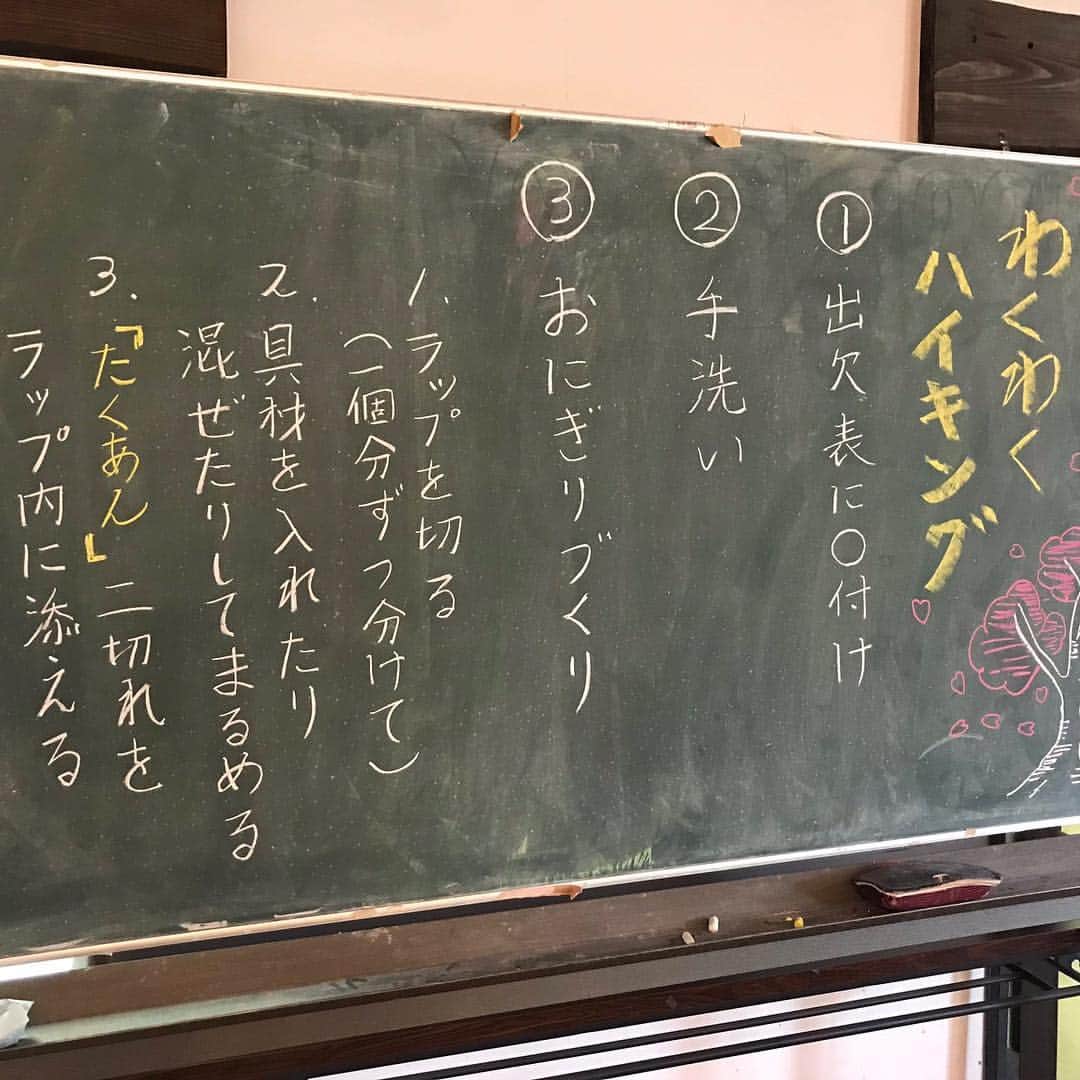 わくわく
ハイキング
① 出欠表に〇付け
② 手洗い
③ おにぎりづくり
1. ラップを切る
(一個分ずつ分けて)
2. 具材を入れたり
混ぜたりしてまるめる
3. 『たくあん』二切れを
ラップ内に添える